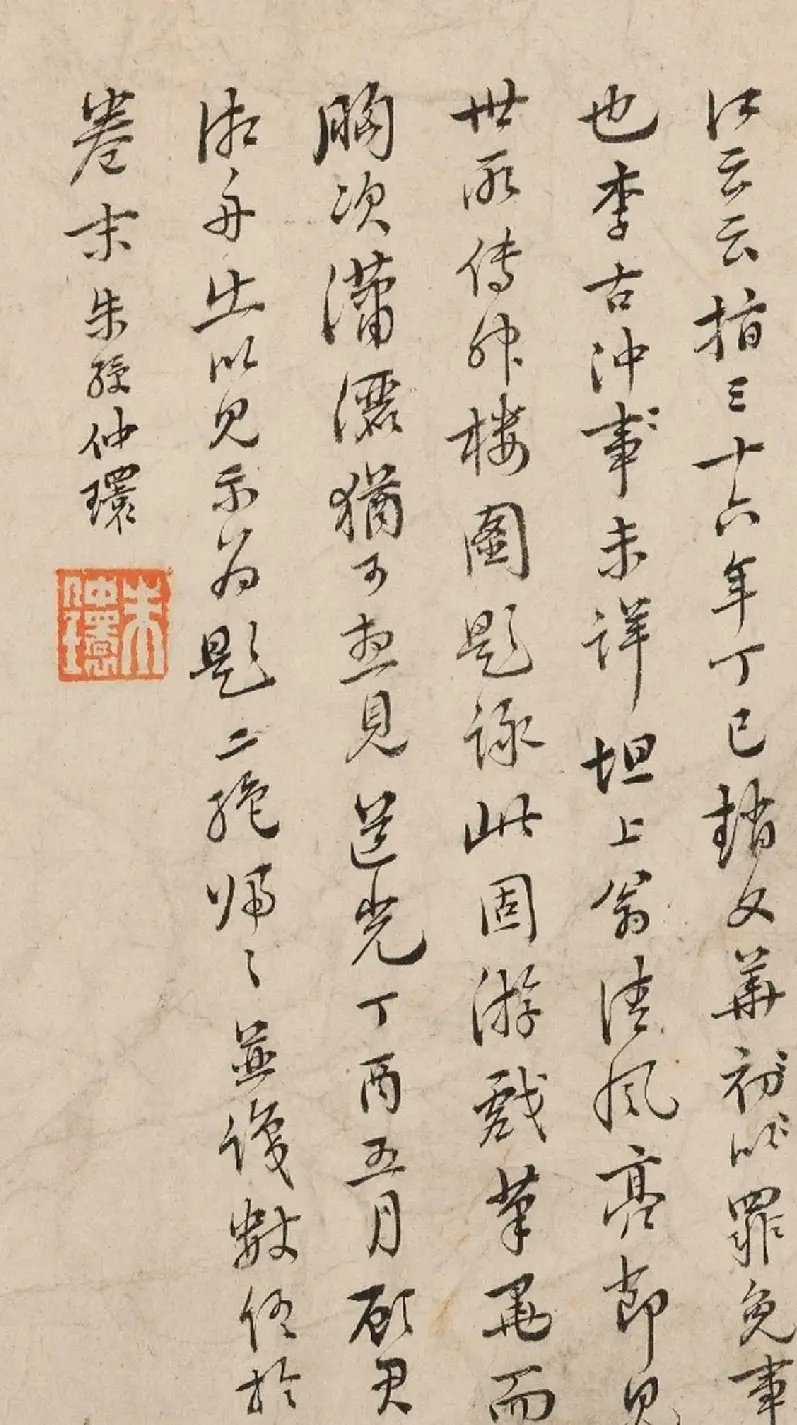 江云云指三十六年丁巳趙文華初以罪免事
也李古沖事未詳坦上翁清風亮節見
世所傳神樓圖題詠此固游戲筆墨而
胸次瀟灑猶可想見道光丁酉五月顧君
湘舟出以見示為題二絕歸之並識數語於
卷末朱綬仲環
朱綬仲環